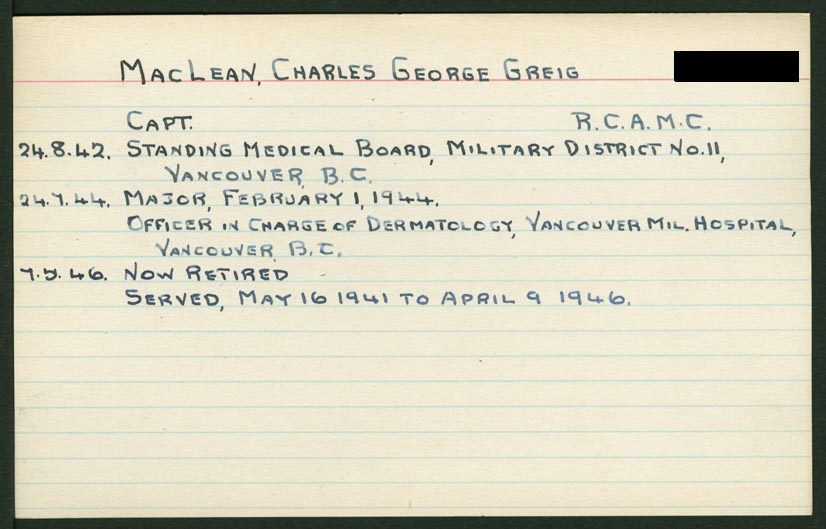 MACLEAN, CHARLES GEORGE GREIG
CAPT. R.C.A.M.C.
24.8.42. STANDING MEDICAL BOARD, MILITARY DISTRICT NO.11,
VANCOUVER, B.C.
24.7.44. MAJOR, FEBRUARY 1, 1944.
OFFICER IN CHARGE OF DERMATOLOGY, VANCOUVER MIL. HOSPITAL,
VANCOUVER, B.C.
7.5.46. NOW RETIRED
SERVED, MAY 16 1941 TO APRIL 9 1946.